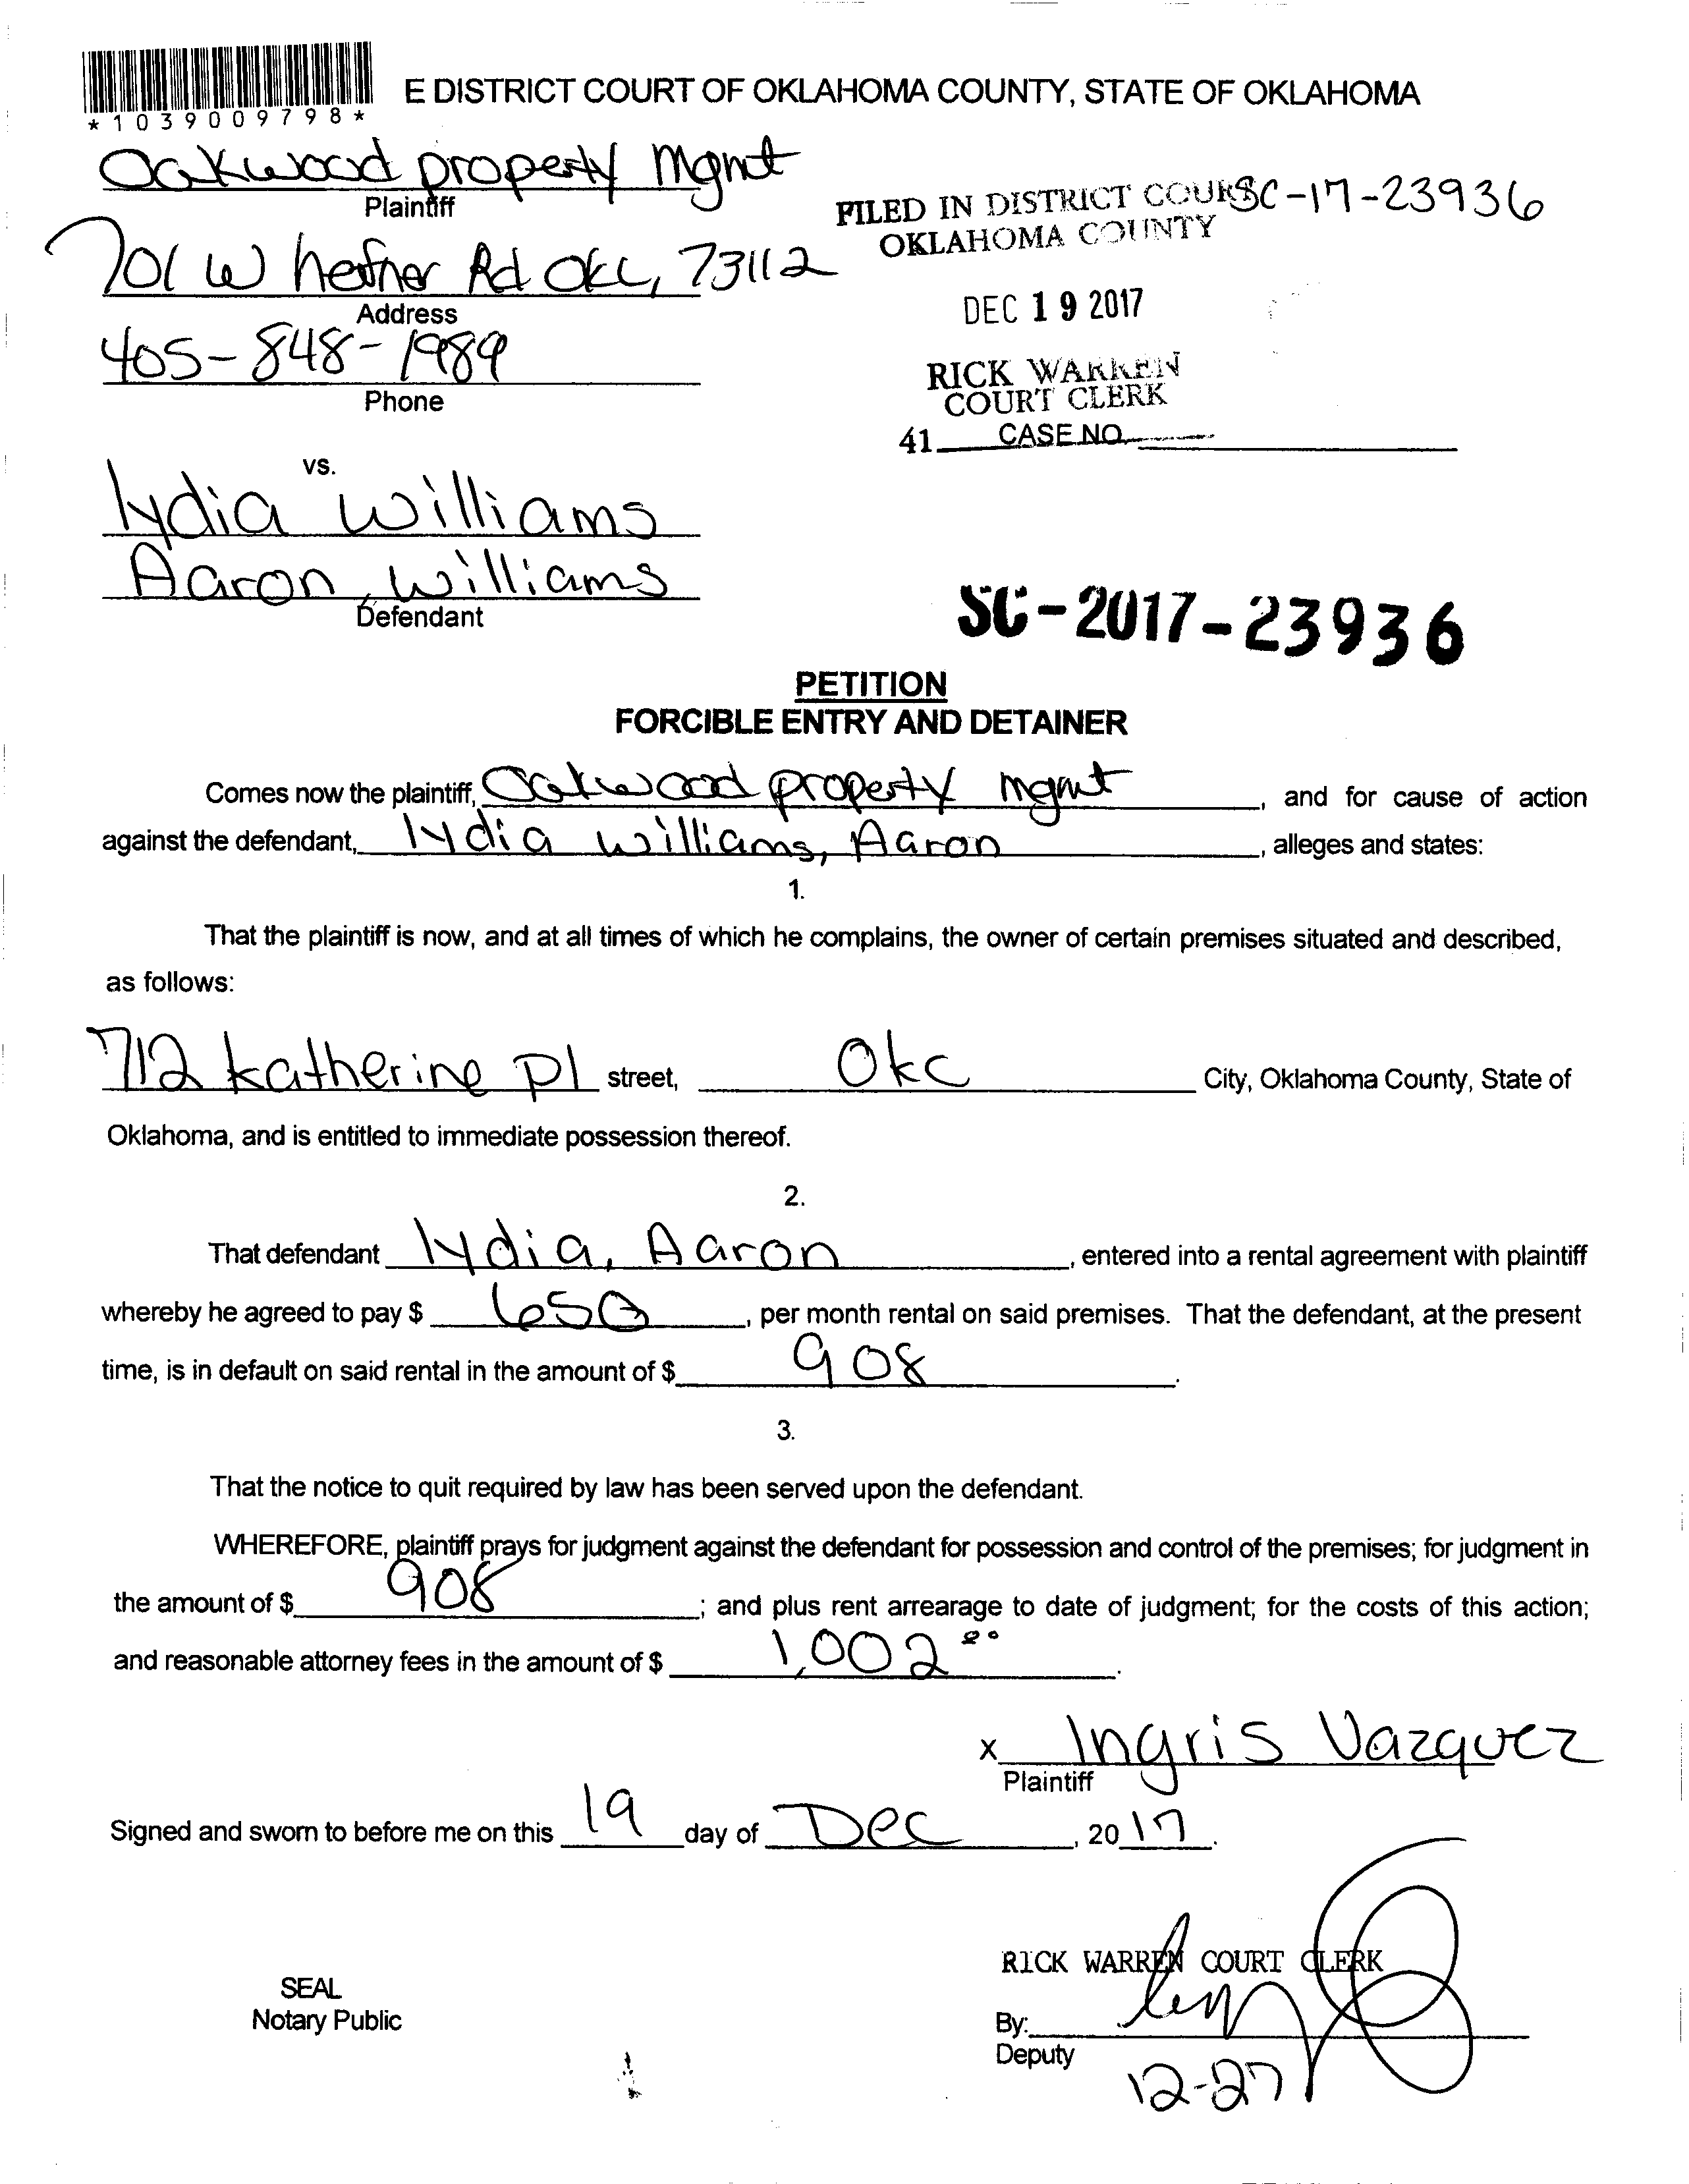 E DISTRICT COURT OF OKLAHOMA COUNTY, STATE OF OKLAHOMA
*1039009798*
Oakwood property Mgmt
Plaintiff
FILED IN DISTRICT COUR SC-17-23936
OKLAHOMA COUNTY
701 W hefner Rd OKC, 73112
Address
DEC 19 2017
405-848-1989
Phone
RICK WARREN
COURT CLERK
41 CASE NO.
vs.
lydia williams
Aaron williams
Defendant
SC-2017-23936
PETITION
FORCIBLE ENTRY AND DETAINER
Comes now the plaintiff, Oakwood property mgmt, and for cause of action
against the defendant, lydia williams, Aaron, alleges and states:
1.
That the plaintiff is now, and at all times of which he complains, the owner of certain premises situated and described,
as follows:
712 katherine pl street, Okc City, Oklahoma County, State of
Oklahoma, and is entitled to immediate possession thereof.
2.
That defendant lydia, Aaron, entered into a rental agreement with plaintiff
whereby he agreed to pay $ 650, per month rental on said premises. That the defendant, at the present
time, is in default on said rental in the amount of $ 908.
3.
That the notice to quit required by law has been served upon the defendant.
WHEREFORE, plaintiff prays for judgment against the defendant for possession and control of the premises; for judgment in
the amount of $ 908; and plus rent arrearage to date of judgment; for the costs of this action;
and reasonable attorney fees in the amount of $ 1,002 00.
x Ingris Vazquez
Plaintiff
Signed and sworn to before me on this 19 day of Dec, 2017.
RICK WARREN COURT CLERK
SEAL
Notary Public
By:
Deputy
12-27